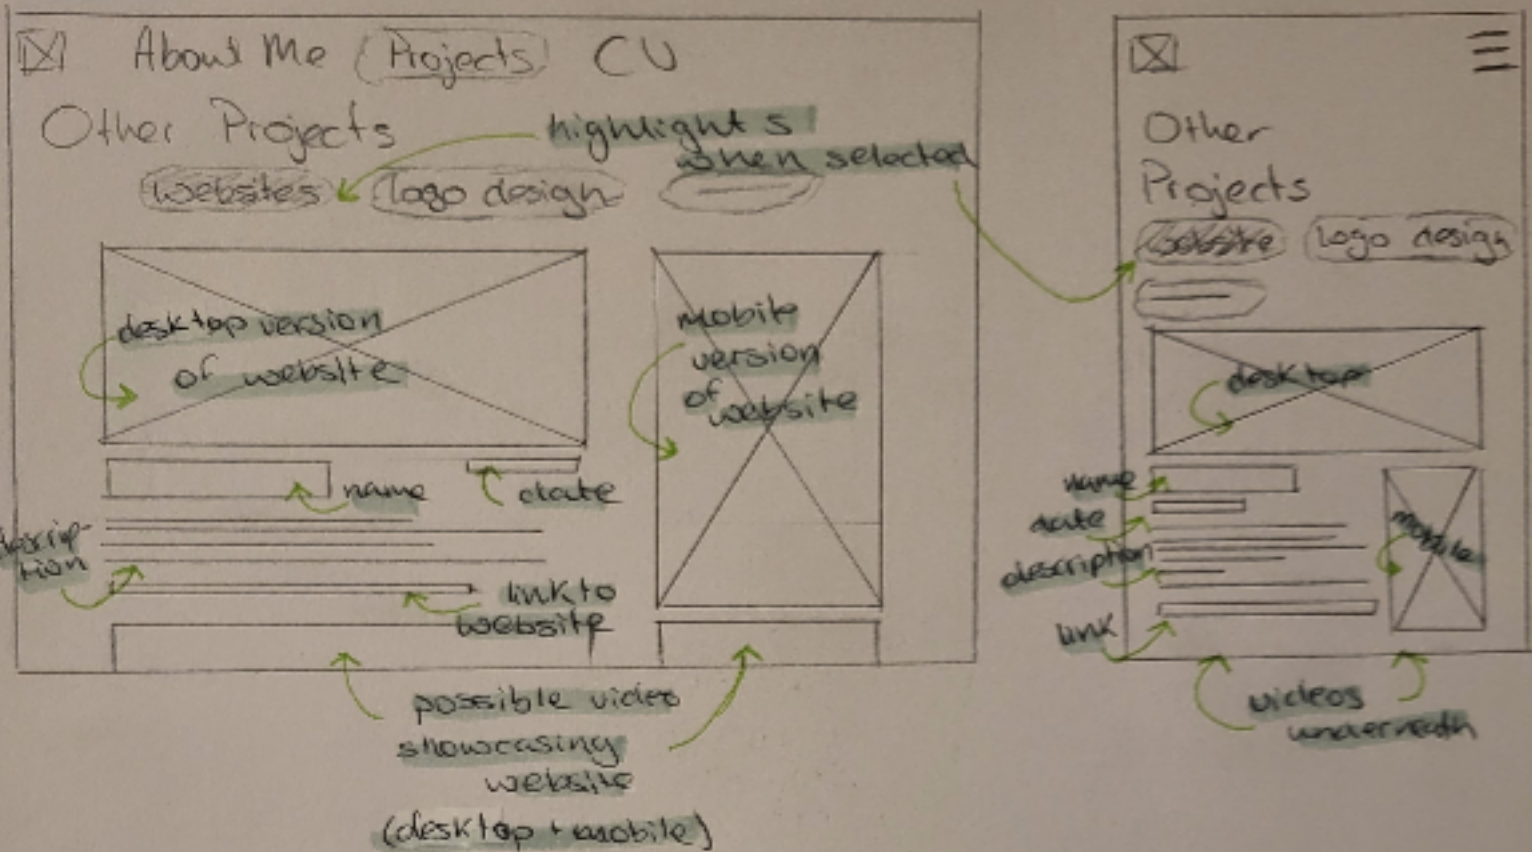 About Me Projects CV
Other Projects
highlights
when selected
websites logo design
desktop version
of website
mobile
version
of website
name date
descrip-
tion
link to
website
possible video
showcasing
website
(desktop + mobile)
Other
Projects
website logo design
desktop
name
date
description
mobile
link
videos
underneath